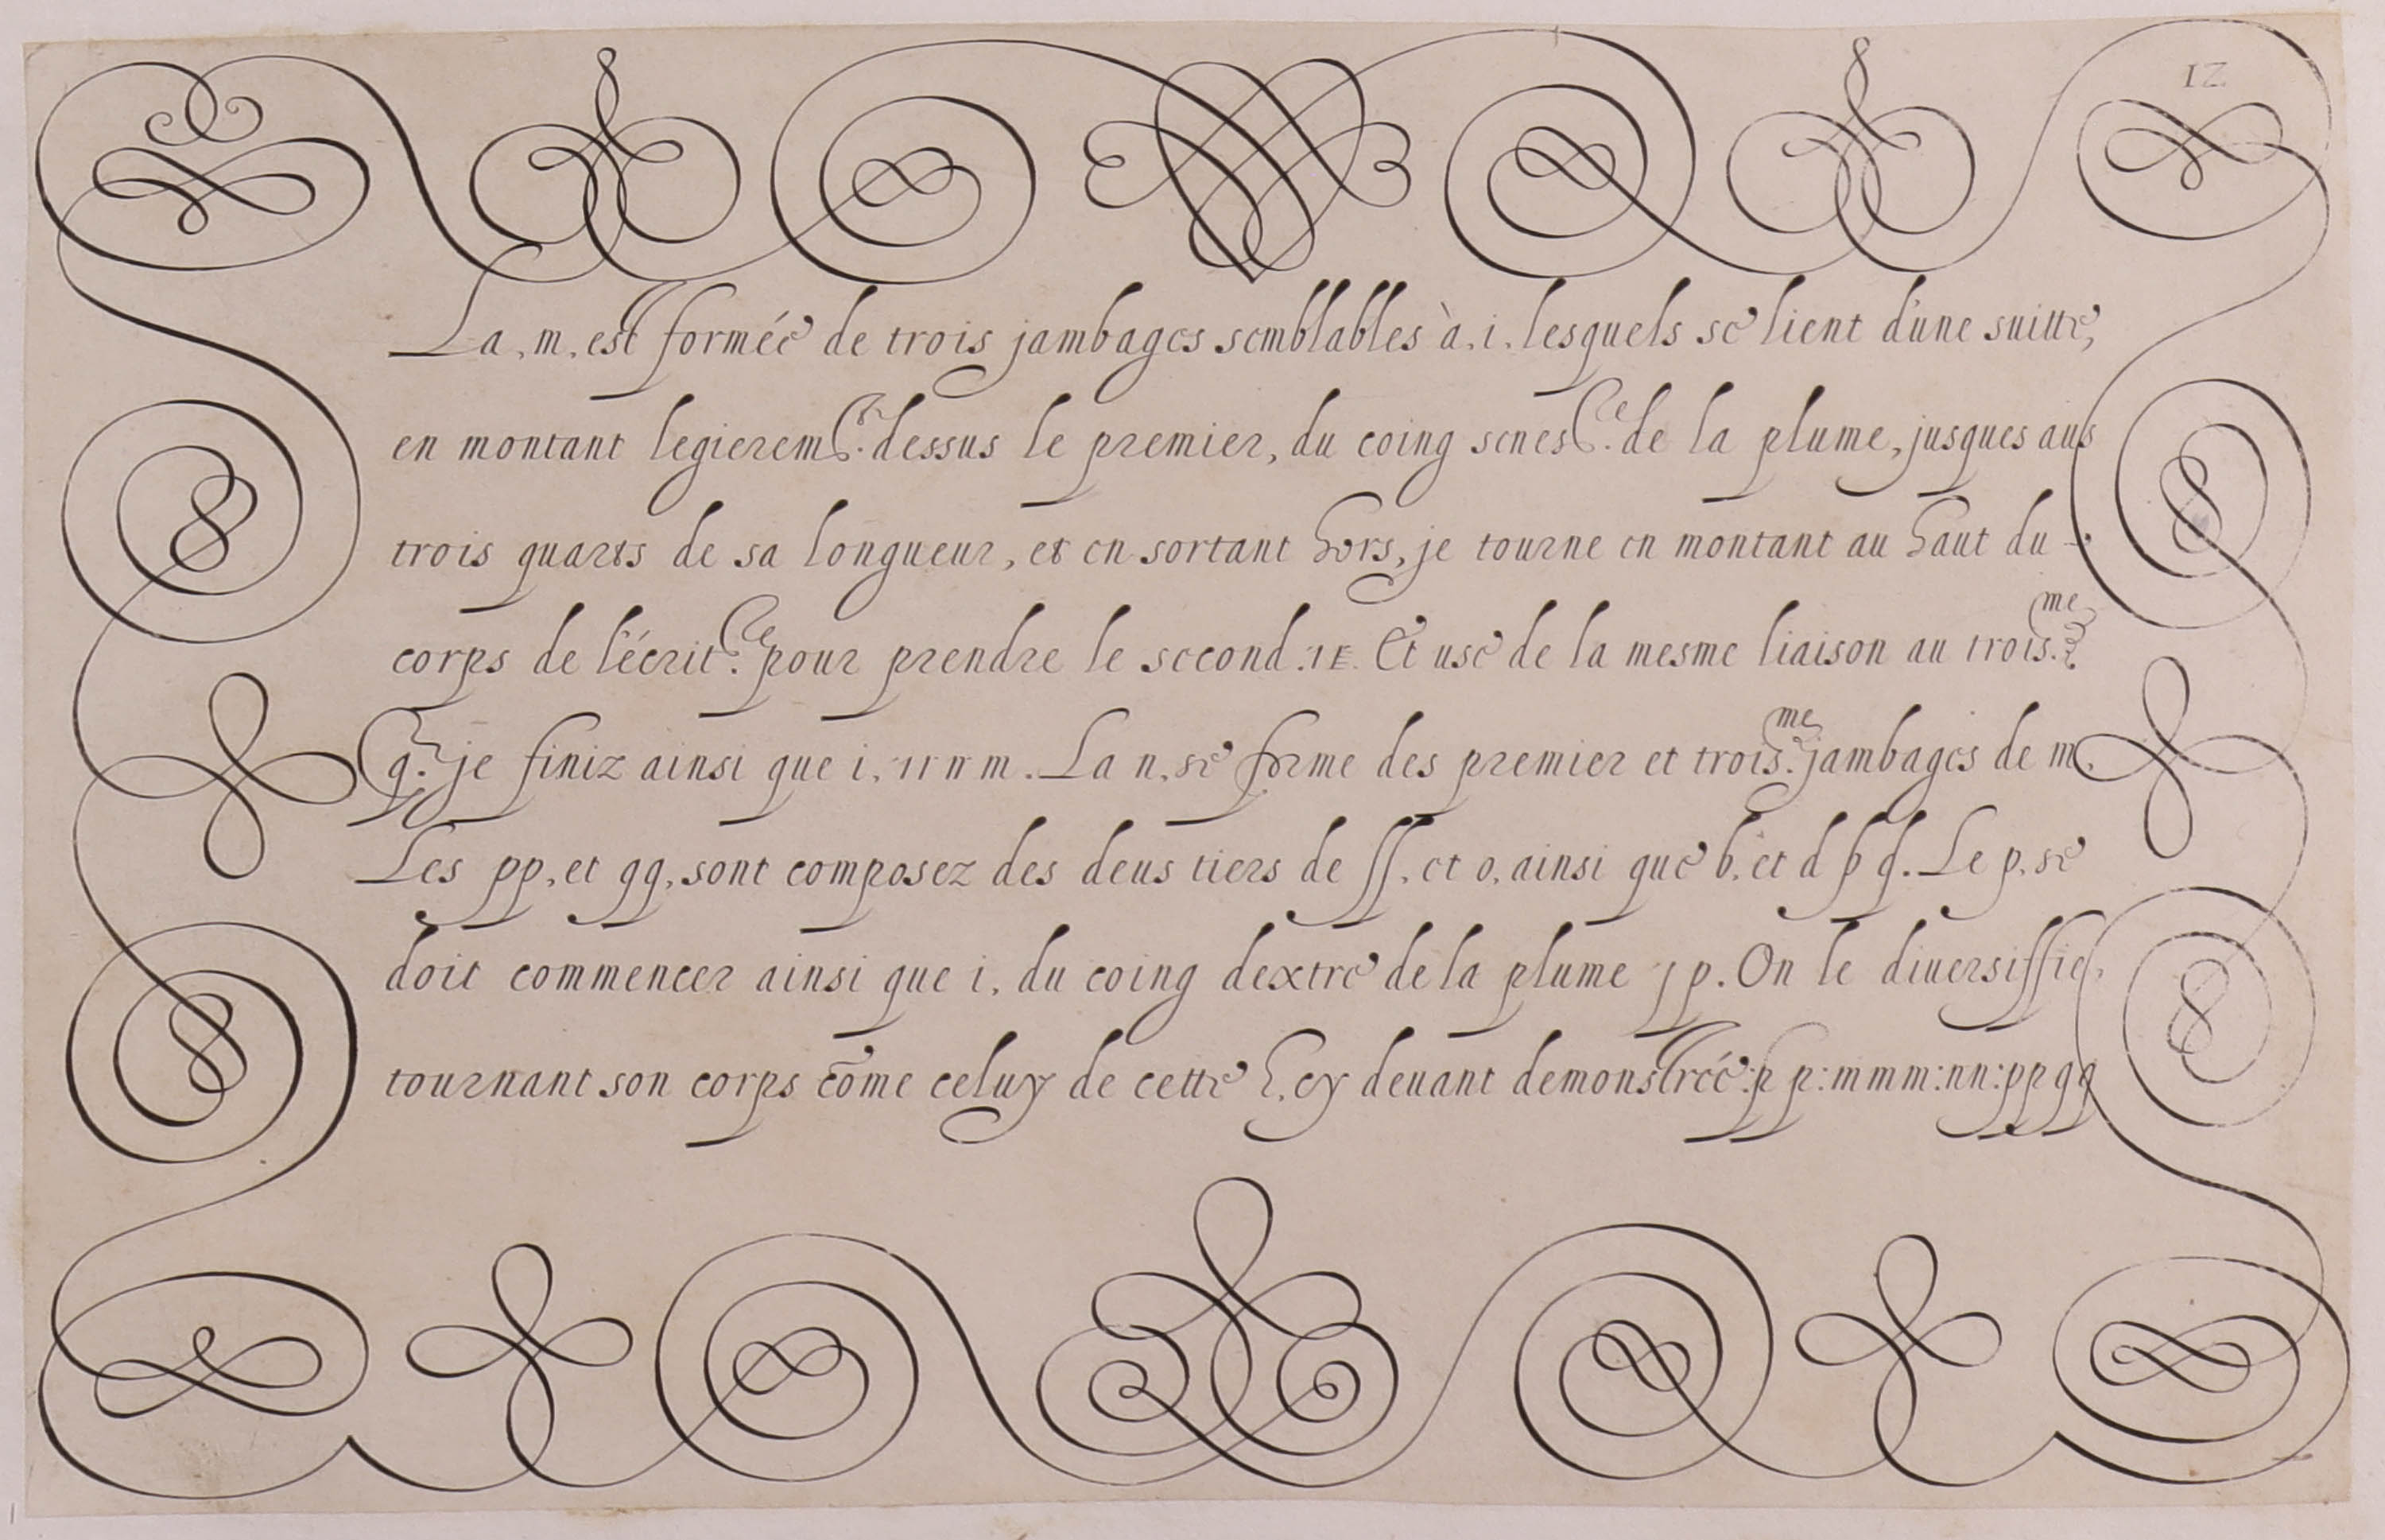 12.
La, m, est formée de trois jambages semblables à, i, lesquels se lient d'une suitte,
en montant legierem.t dessus le premier, du coing senes.e de la plume, jusques aus
trois quarts de sa longueur, et en sortant hors, je tourne en montant au haut du -
corps de l'écrit.re pour prendre le second. Et use de la mesme liaison au trois.me
q. je finiz ainsi que i, n m. La n, se forme des premier et trois.me jambages de m,
Les pp, et qq, sont composez des deus tiers de ff, et o, ainsi que b, et d p q. Le p, se
doit commencer ainsi que i, du coing dextre de la plume p. On le diuersiffie,
tournant son corps cōme celuy de cette h, cy deuant demonstrée: p p: m m m: n n: p p q q